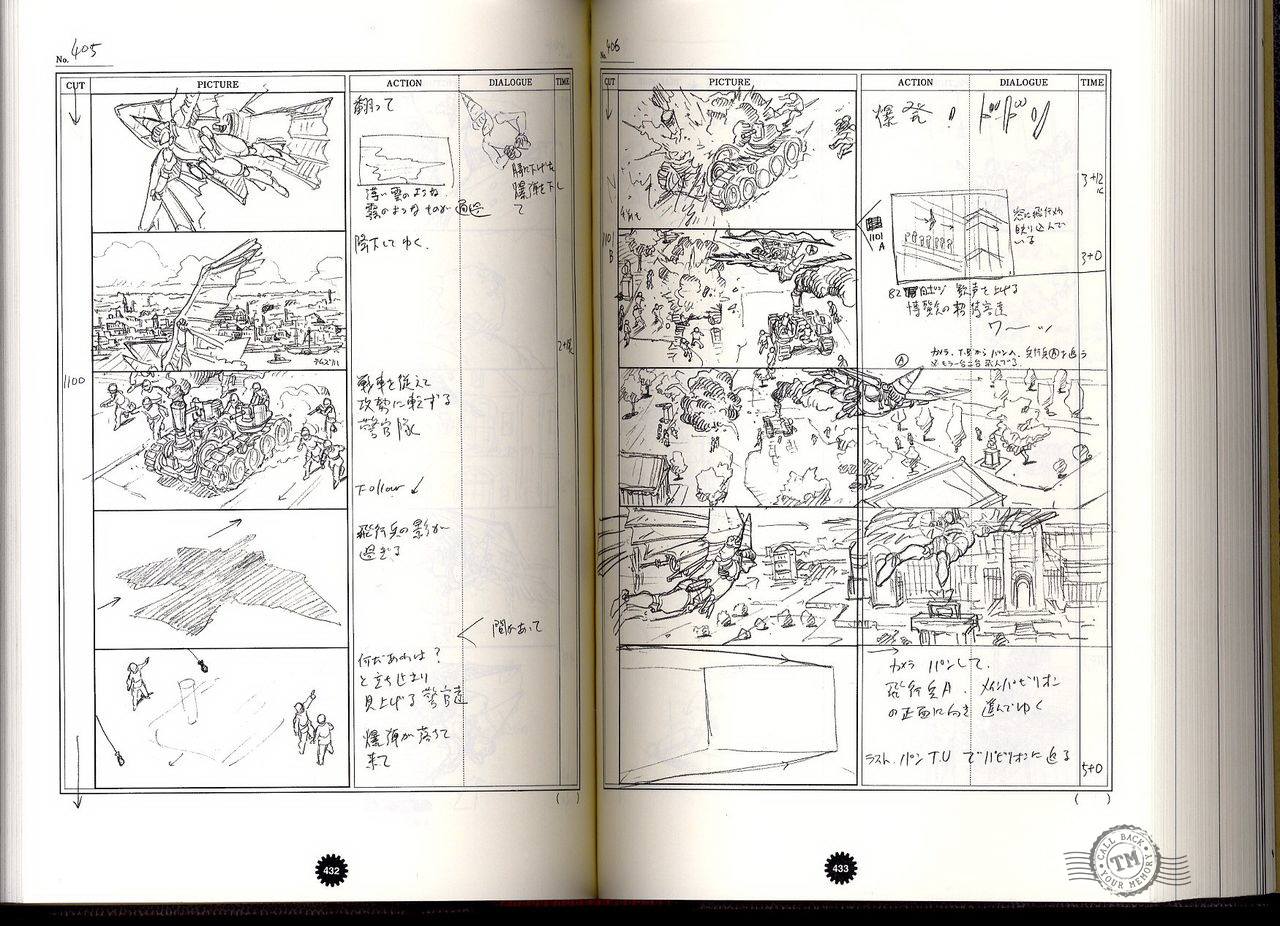 No. 405
CUT PICTURE ACTION DIALOGUE TIME
翻って
薄い雲のような
霧のようなものが通過
腕に下げた
爆弾を下し
て
降下してゆく。
テムズ川
1100
戦車を従えて
攻勢に転ずる
警官隊
Follow
飛行兵の影が
過ぎる
間があって
何だあれは?
と立ち止まり
見上げる警官達
爆弾が落ちて
来て
( )
432
No. 406
CUT PICTURE ACTION DIALOGUE TIME
爆発! ドドドン
3+12
1101
A
窓に飛行兵
映り込んで
いる
3+0
1101
B
A
歓声を上げる
博覧会の招待客達
ワーッ
A
カメラ、T.Bからパン、飛行兵Aを追う
カメラ パンして、
飛行兵A、メインパビリオン
の正面に向き進んでゆく
ラスト、パンT.Uでパビリオンに迫る
5+0
( )
433
CALL BACK
TM
YOUR MEMORY